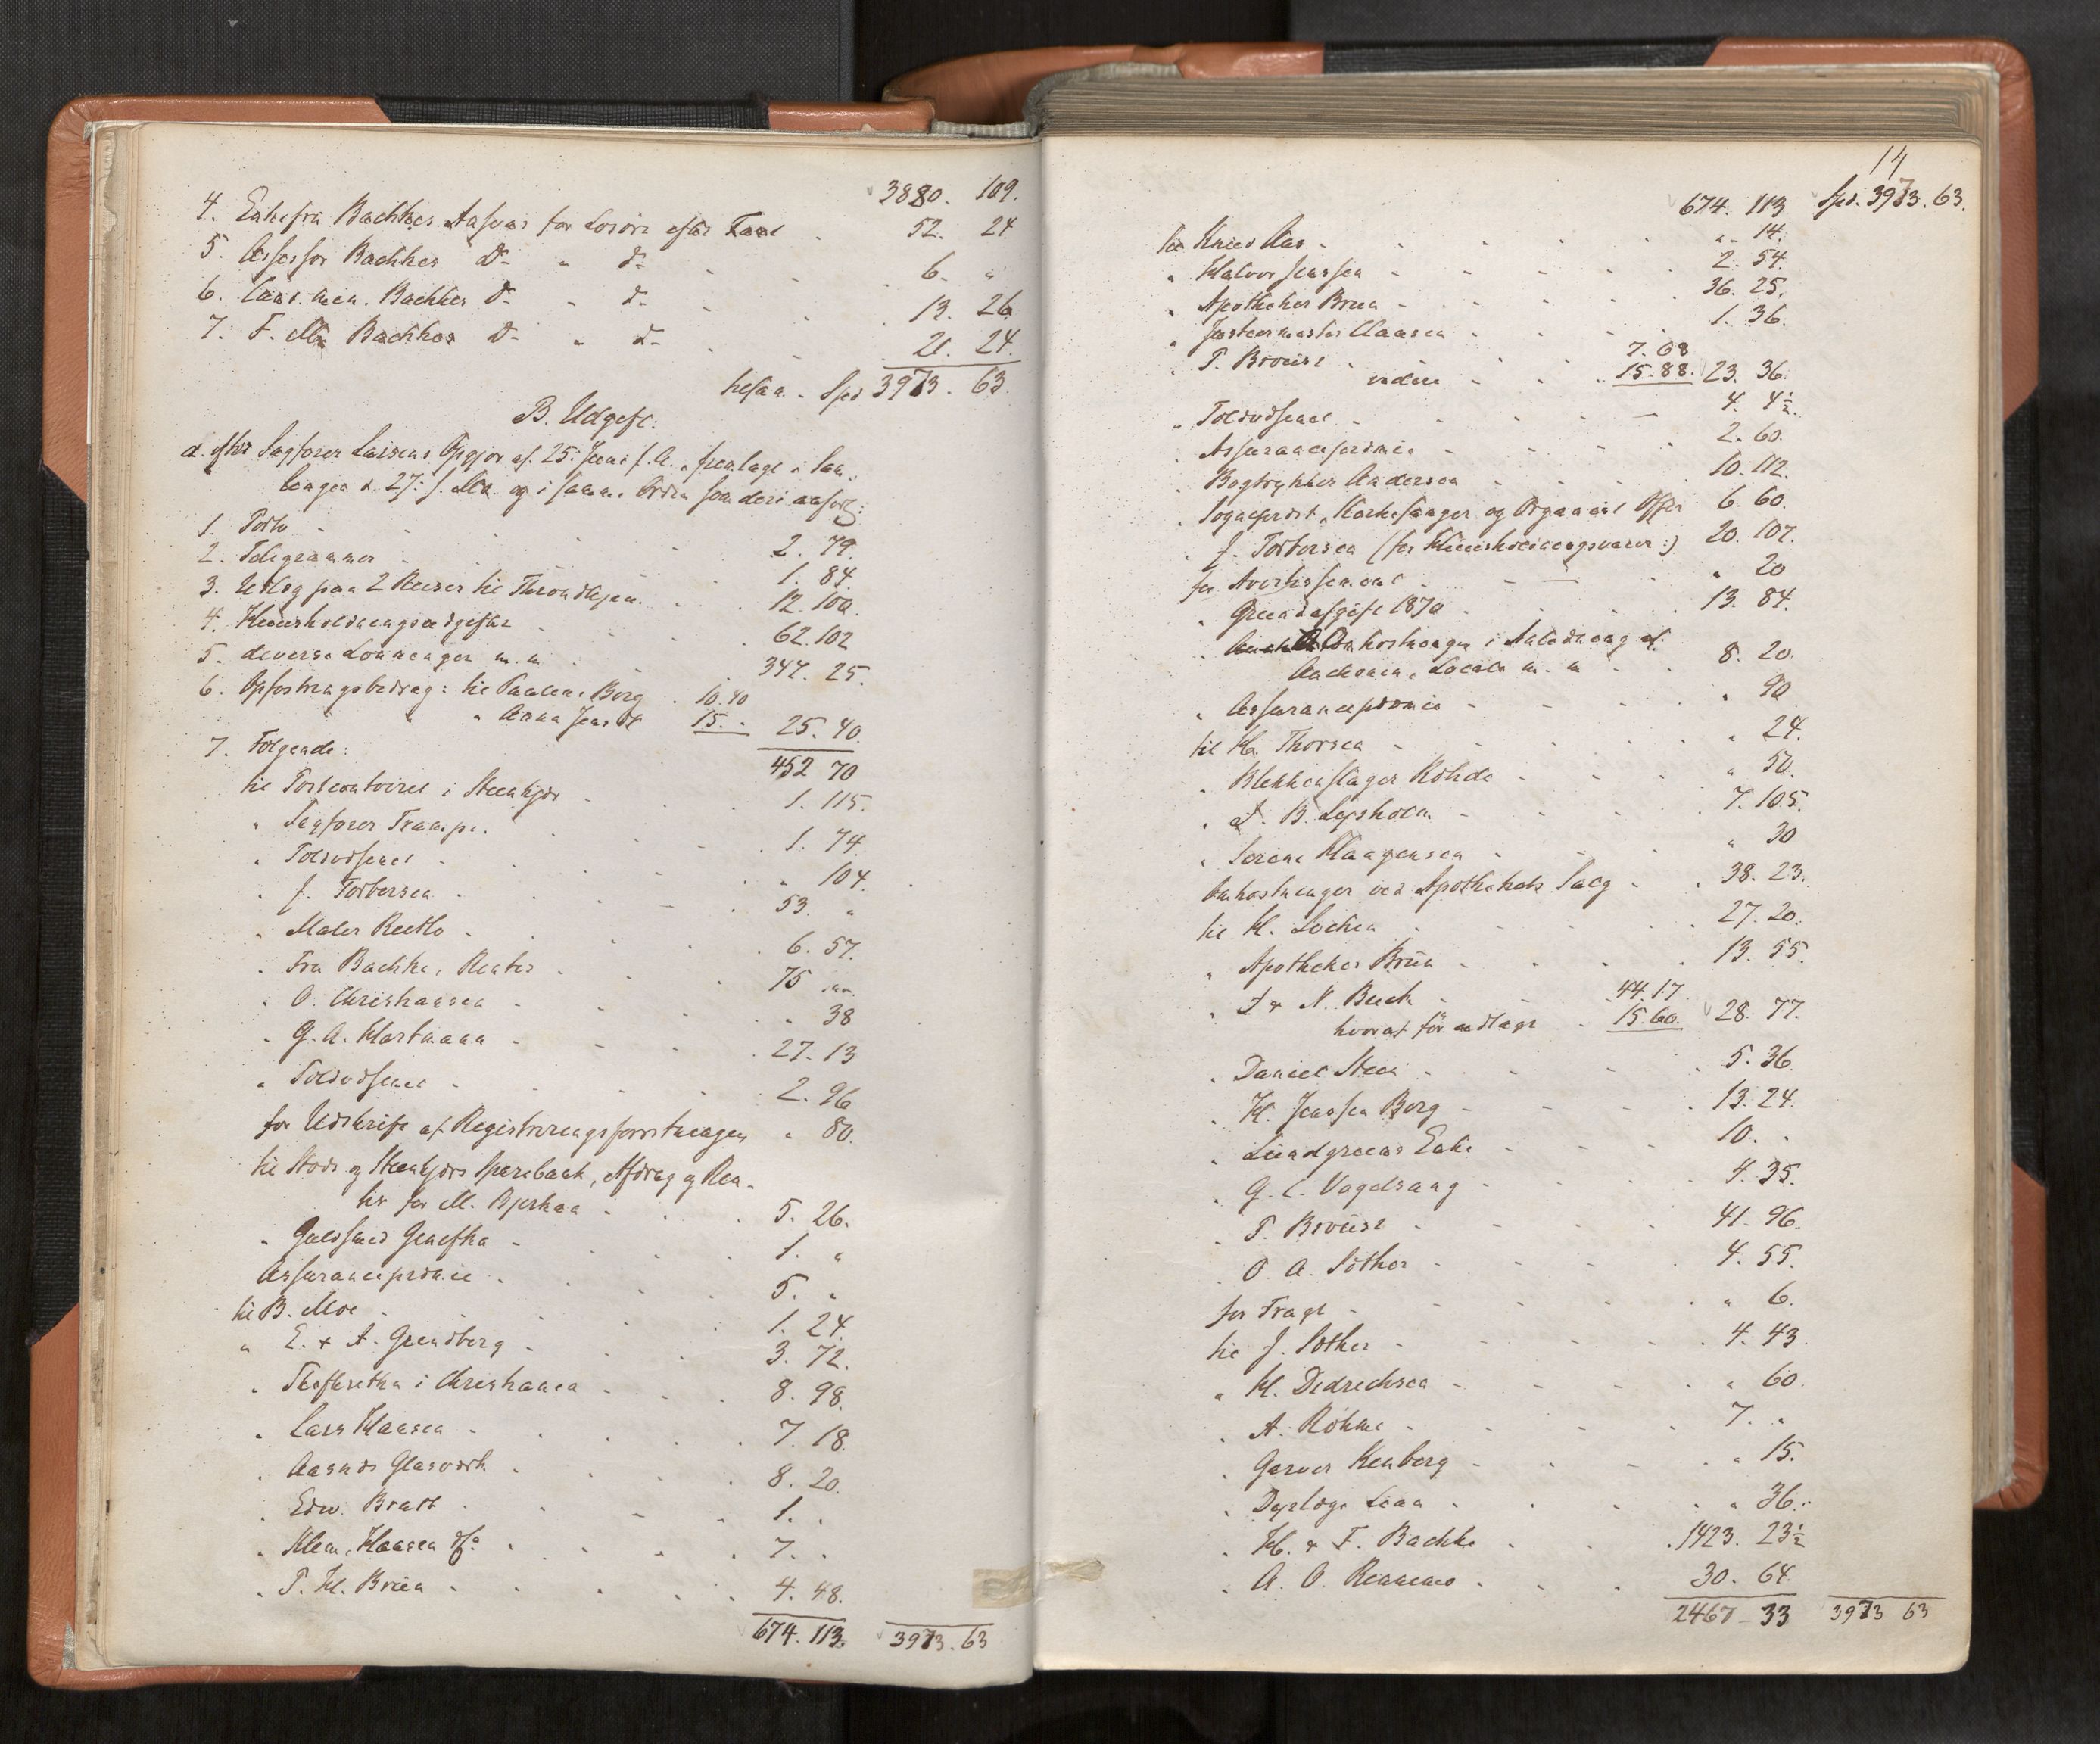 3880. 109.
4. Enkefru Bachkes Ansvar for Losöre efter Taxt . 52. 24
5. Assessor Bachkes Do " do . . 6. "
6. Cand. med. Bachkes Do " do . . 13. 26
7. F. M. Bachkes Do " do . . 21. 24.
tilsam. Spd 3973. 63.
B. Udgift:
a. efter Sagförer Larsens Opgjör af 25. Juni f. A., fremlagt i Sam-
lingen d. 27. s. M. og i samme Orden som deri anfört:
1. Porto . . . . 2. 79.
2. Telegrammer . . . 1. 84.
3. Udlæg paa 2 Reiser til Throndhjem . . 12. 100.
4. Huusholdningsudgifter . . . 62. 102
5. diverse Lönninger m. m. . . . 347. 25.
6. Opfostringsbidrag: til Pauline Berg . 10. 40
" Anna Jensdt 15. " 25. 40.
7. Fölgende: 452 70
til Postcontoiret i Steenkjær . . 1. 115.
" Sagförer Trampe . . . 1. 74
" Toldvæsenet . . . " 104.
" J. Torbersen . . . 53. "
" Maler Reetto . . . 6. 57.
" Fru Bachke, Renter . . . 75 "
" O. Christiansen . . . " 38
" G. A. Hartmann . . . 27. 13
" Toldvæsenet . . . 2. 96
for Udskrift af Registreringsforretningen " 80.
til Stods og Steenkjærs Sparebank, Afdrag og Ren-
ter for M. Bjerkan . . 5. 26.
" Guldsmed . . . 1. "
Assurancepræmie . . . 5. "
til B. Moe . . . 1. 24.
" E. & A. Grundberg . . . 3. 72.
" i Christiania . . 8. 98.
" Lars Hansen . . . 7. 18.
" Aasnæs Glasværk . . . 8. 20.
" Edw. Bratt . . . 1. .
" Klem. Hansen & Co . . . 7. .
" P. H. Brün . . . 4. 48.
674. 113. 3973. 63
14
674. 113 Spd. 3973. 63.
til Knud Aas . . . " 14.
" Halvor Jenssen . . . 2. 54.
" Apotheker Brün . . . 36. 25.
" Justermester Claasen . . . 1. 36.
" P. Broust . 7. 68
videre . . 15. 88. 23. 36.
" Toldvæsenet . . . 4. 4½.
" Assurancepræmie . . . 2. 60.
" Bogtrykker Andersen . . . 10. 112.
" Sogneprest, Kirkesanger og Organist Offer 6. 60.
" J. Torbersen (for Huusholdningsvarer:) 20. 107.
for Avertissement . . . " 20
" Grundafgift 1870 . . . 13. 84.
" Omkostninger i Anledning af
Auctionen, Locale m. m. . . 8. 20.
" Assurancepræmie . . . " 90
til H. Thorsen . . . " 24.
" Blikkenslager Rohde . . . " 50.
" B. Lysholm . . . 7. 105.
" Serine Haagensen . . . " 30
Omkostninger ved Apothekets Salg . . 38. 23.
til H. Lochen . . . 27. 20.
" Apotheker Brün . . . 13. 55.
" I & N. Buch . 44. 17
hvoraf för udtagt . 15. 60. 28. 77.
" Daniel Steen . . . 5. 36.
" H. Jenssen Berg . . . 13. 24.
" Lundgreens Enke . . . 10. .
" G. C. Vogelsang . . . 4. 35.
" P. Broust . . . 41. 96.
" O. A. Söther . . . 4. 55.
for Fragt . . . " 6.
til J. Söther . . . 4. 43.
" H. Didrichsen . . . " 60.
" A. Röhme . . . 7. .
" Garver Renberg . . . " 15.
" Dyrlæge Lian . . . " 36.
" H. & F. Bachke . . . 1423. 23½
" A. O. . . . 30. 64.
2467 - 33 3973 63